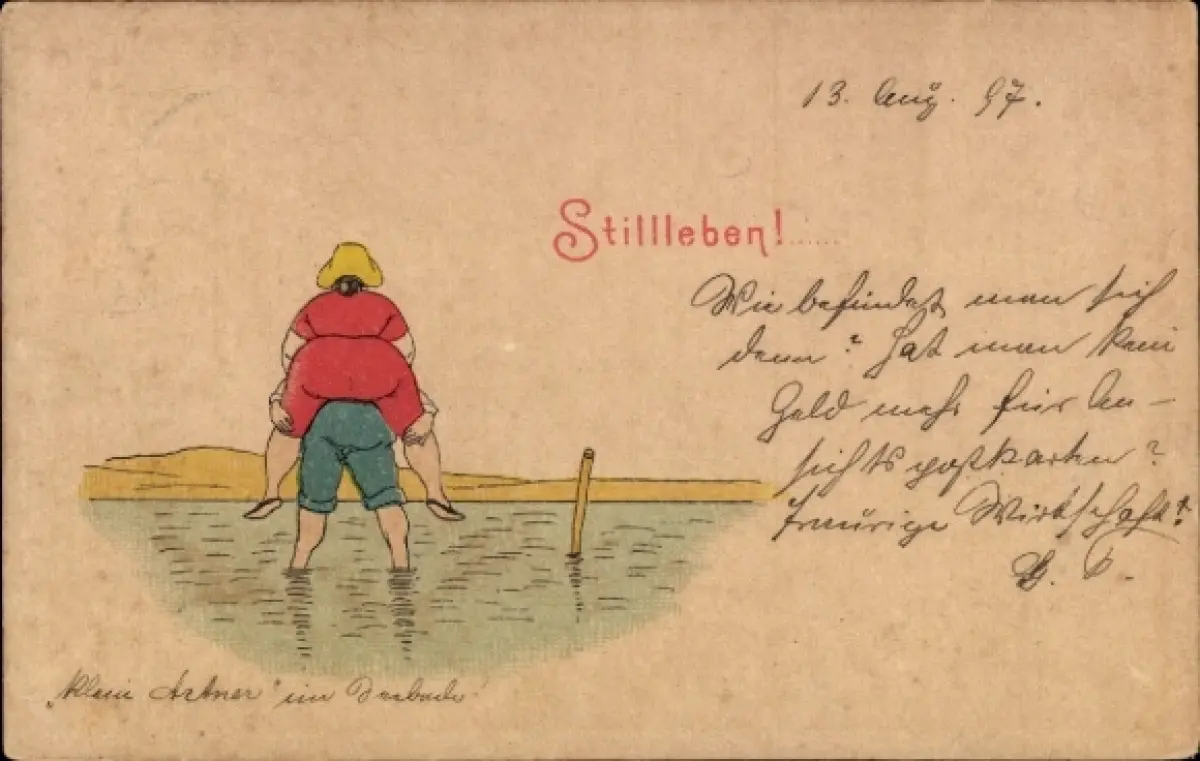 13. Aug. 97.
Stillleben!......
Wie befindet man sich
denn? Hat man kein
Geld mehr für An-
sichtspostkarten?
Traurige Wirtschaft!
"Klein Artner" im